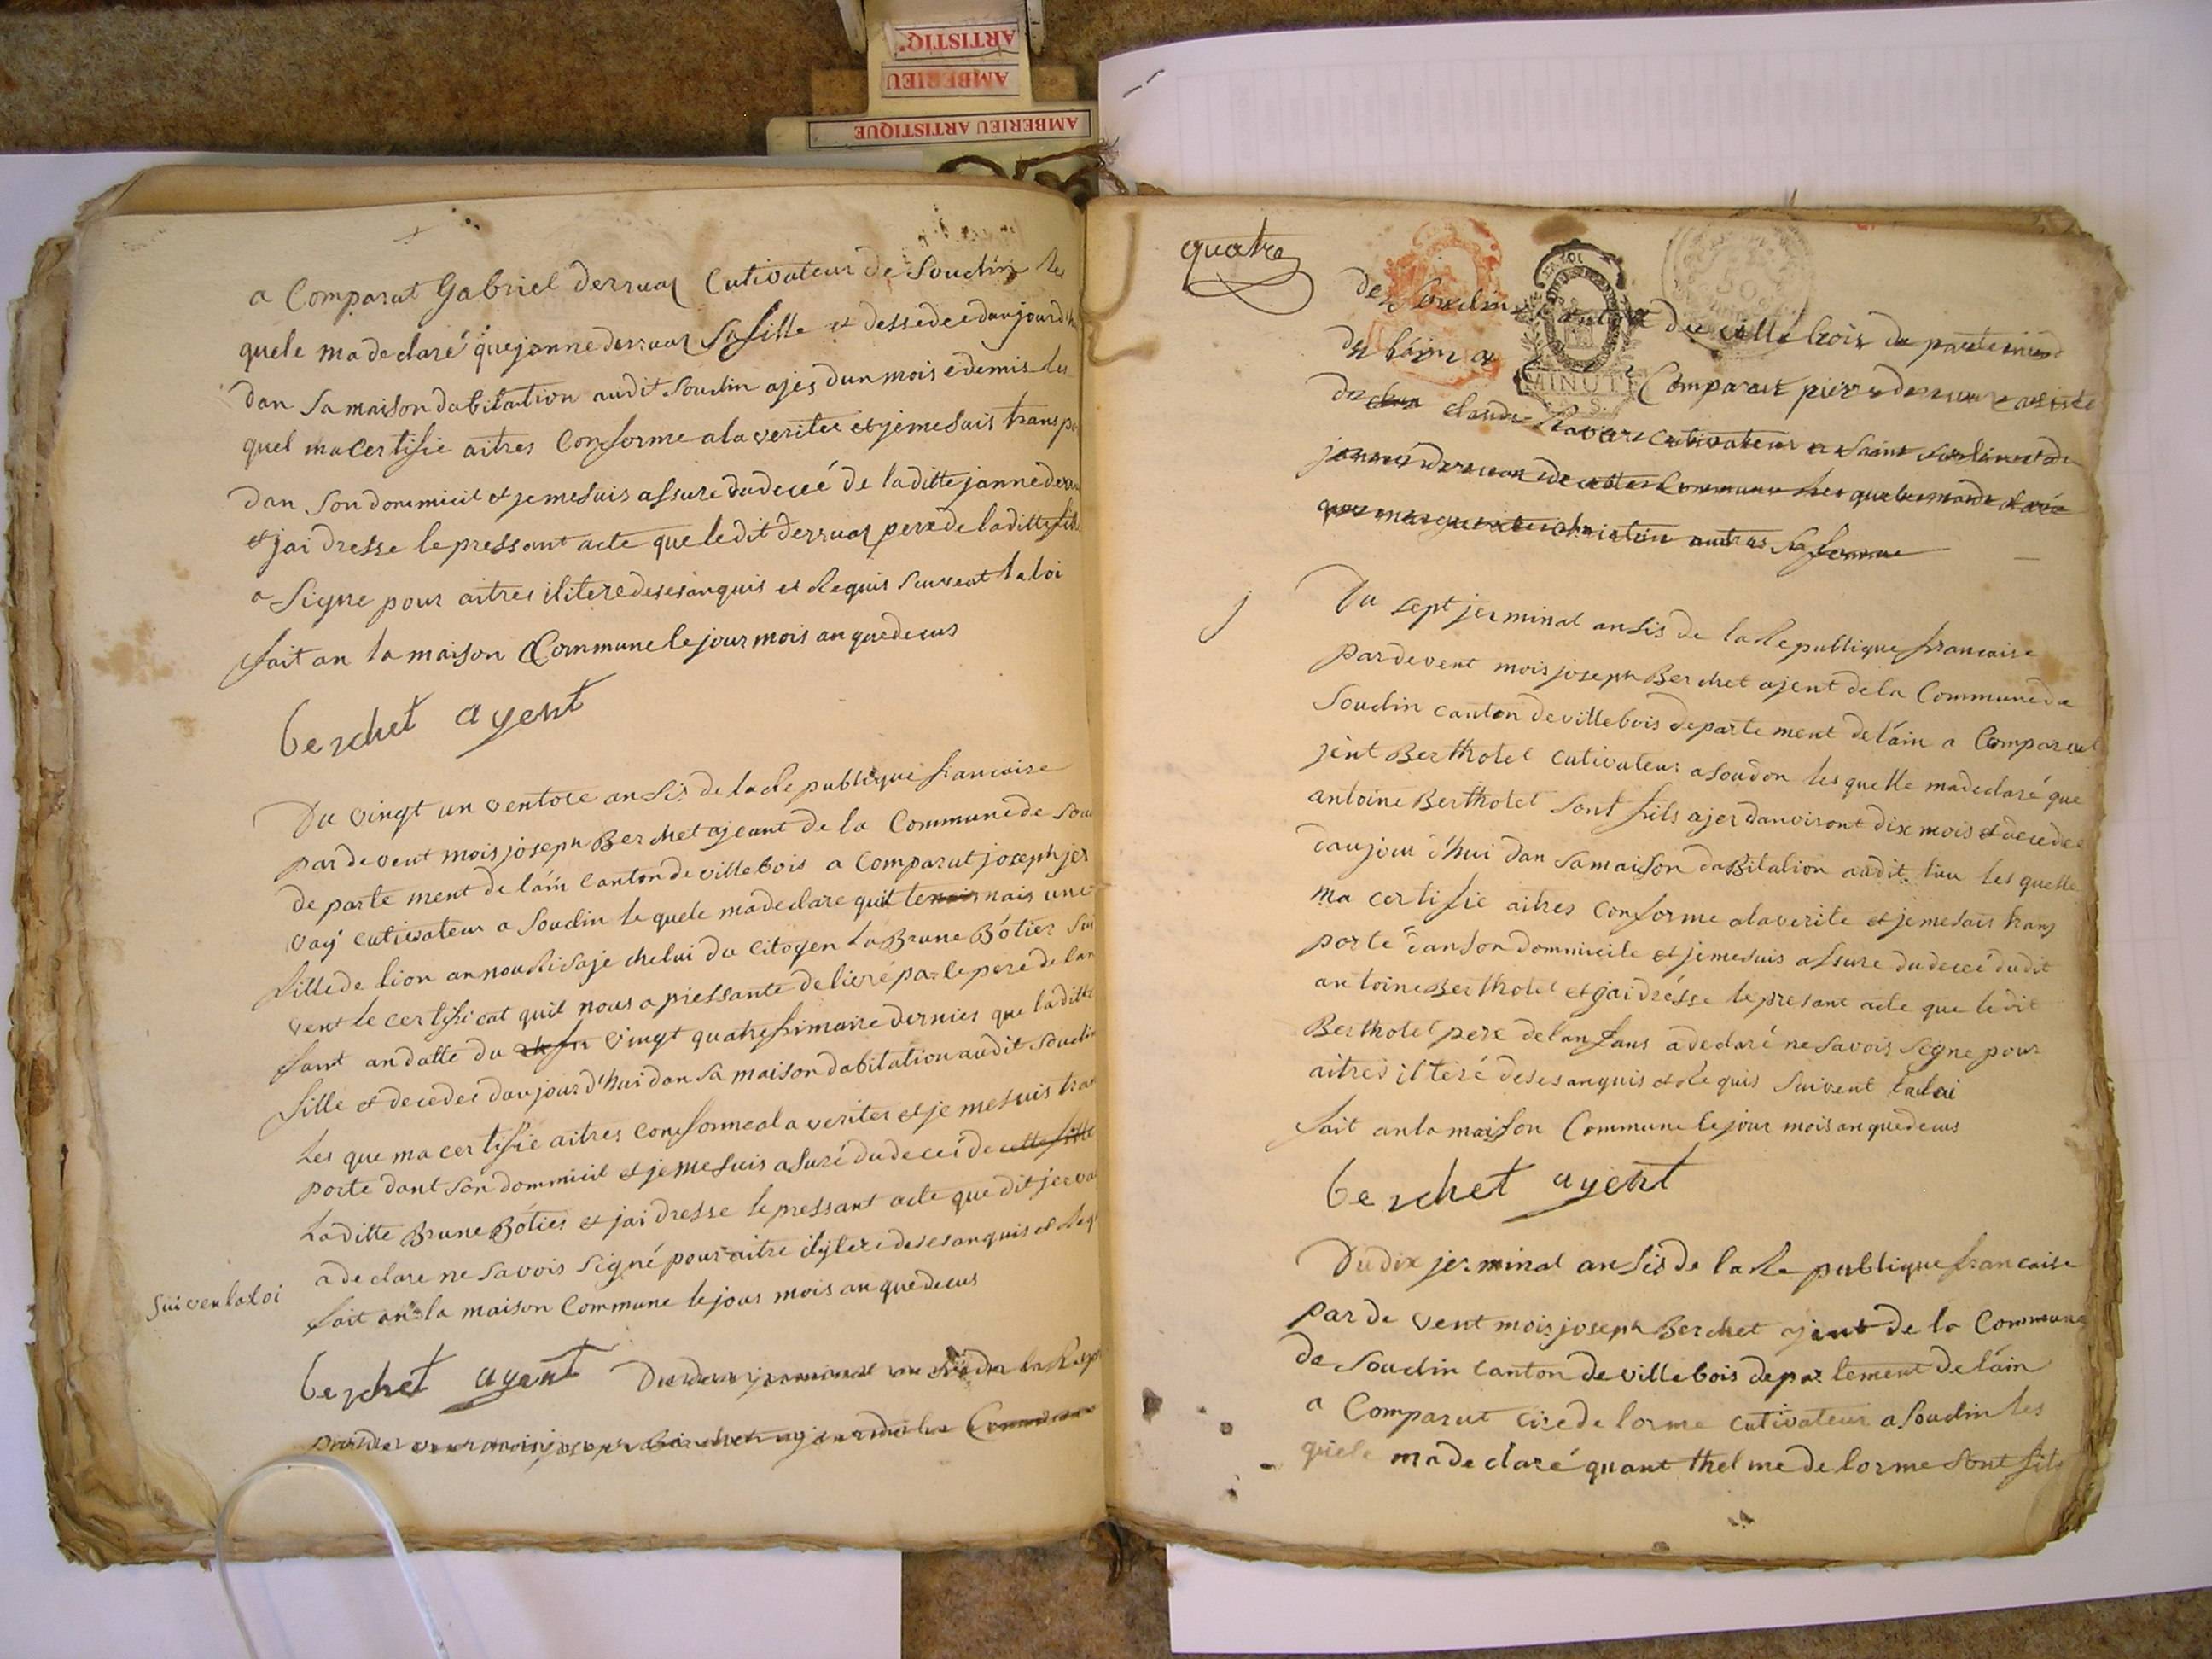 ARTISTIQ
AMBERIEU
AMBERIEU ARTISTIQUE
a Comparut Gabriel derruaz Cutivateur de Soudin les
quele ma declaré que janne derruaz Sa fille et dessedee daujourdhu
dan Sa maison dabitation audit Soudin ajes dun mois edemis les
quel ma Certifie aitres Conforme ala veritee et je me suis transpo
dan Son dommicil et je me suis assure du deceé de laditte janne derru
et jai dresse le pressant acte que le dit derruaz pere de laditte fille
a Signe pour aitres ilitere de ses anquis et Requis Suivent la loi
fait an la maison Commune le jour mois an que decus
berchet agent
Du vingt un ventoce an Sis de la Republique francaise
par de vent mois joseph Berchet ajeant de la Commune de Soud
de parte ment de láin Canton de villebois a Comparut joseph jer
vay cutivateur a Soudin le quele ma declare quil tenais nais une
fille de lion an nourisaje chelui du Citoyen La Brune Bótier Sui
vent le certificat quil nous a pressante delivré par le pere de lan
fant an datte du vingt quatre frimaire dernier que laditte
fille et decedee daujourd'hui dan Sa maison dabitation audit Soudin
Les que ma certifie aitres conforme a la verites et je me suis tran
porte dant Son dommicil et je me suis asuré du deceé de cette fille
Laditte Brune Bóties et jai dresse le pressant acte que dit jerva
a declare ne Savois Signé pour aitre ilytere de ses anquis et Req
Suivent la loi
fait an la maison Commune le jour mois an que decus
berchet agent
par de vent mois joseph Berchet ajent de la Commune
quatre
de Soudin Canton de villebois de partement
MINUTE
de láin a Comparut pierre derruaz
de claude Cutivateur a Saint
janne derruaz de cette Commune les queles ma de claré
que marguerite sa femme
Du sept jerminal an Sis de la Republique francaise
par de vent mois joseph Berchet ajent de la Commune de
Soudin canton de villebois departe ment de láin a Comparut
jent Berthotel cutivateur a Soudon les quelle ma declaré que
antoine Berthotel Sont fils ajer danviront dix mois et decedee
daujour d'hui dan Sa maison dabitation audit lieu les quelle
ma certifie aitres conforme a la verite et je me suis trans
porté dan Son dommicile et je me suis assure du deceé dudit
antoine Berthotel et jai drésse le presant acte que le dit
Berthotel pere de lanfans a declaré ne Savois Segne pour
aitres il teré de ses anquis et Requis Suivent la loi
fait an la maison Commune le jour mois an que decus
berchet agent
Du dix jerminal an Sis de la Re publique francaise
par de vent mois joseph Berchet ajent de la Commune
de Soudin canton de villebois depar tement de láin
a Comparut cire de lorme cutivateur a Soudin les
quele ma de claré quant thelme de lorme Sont fils